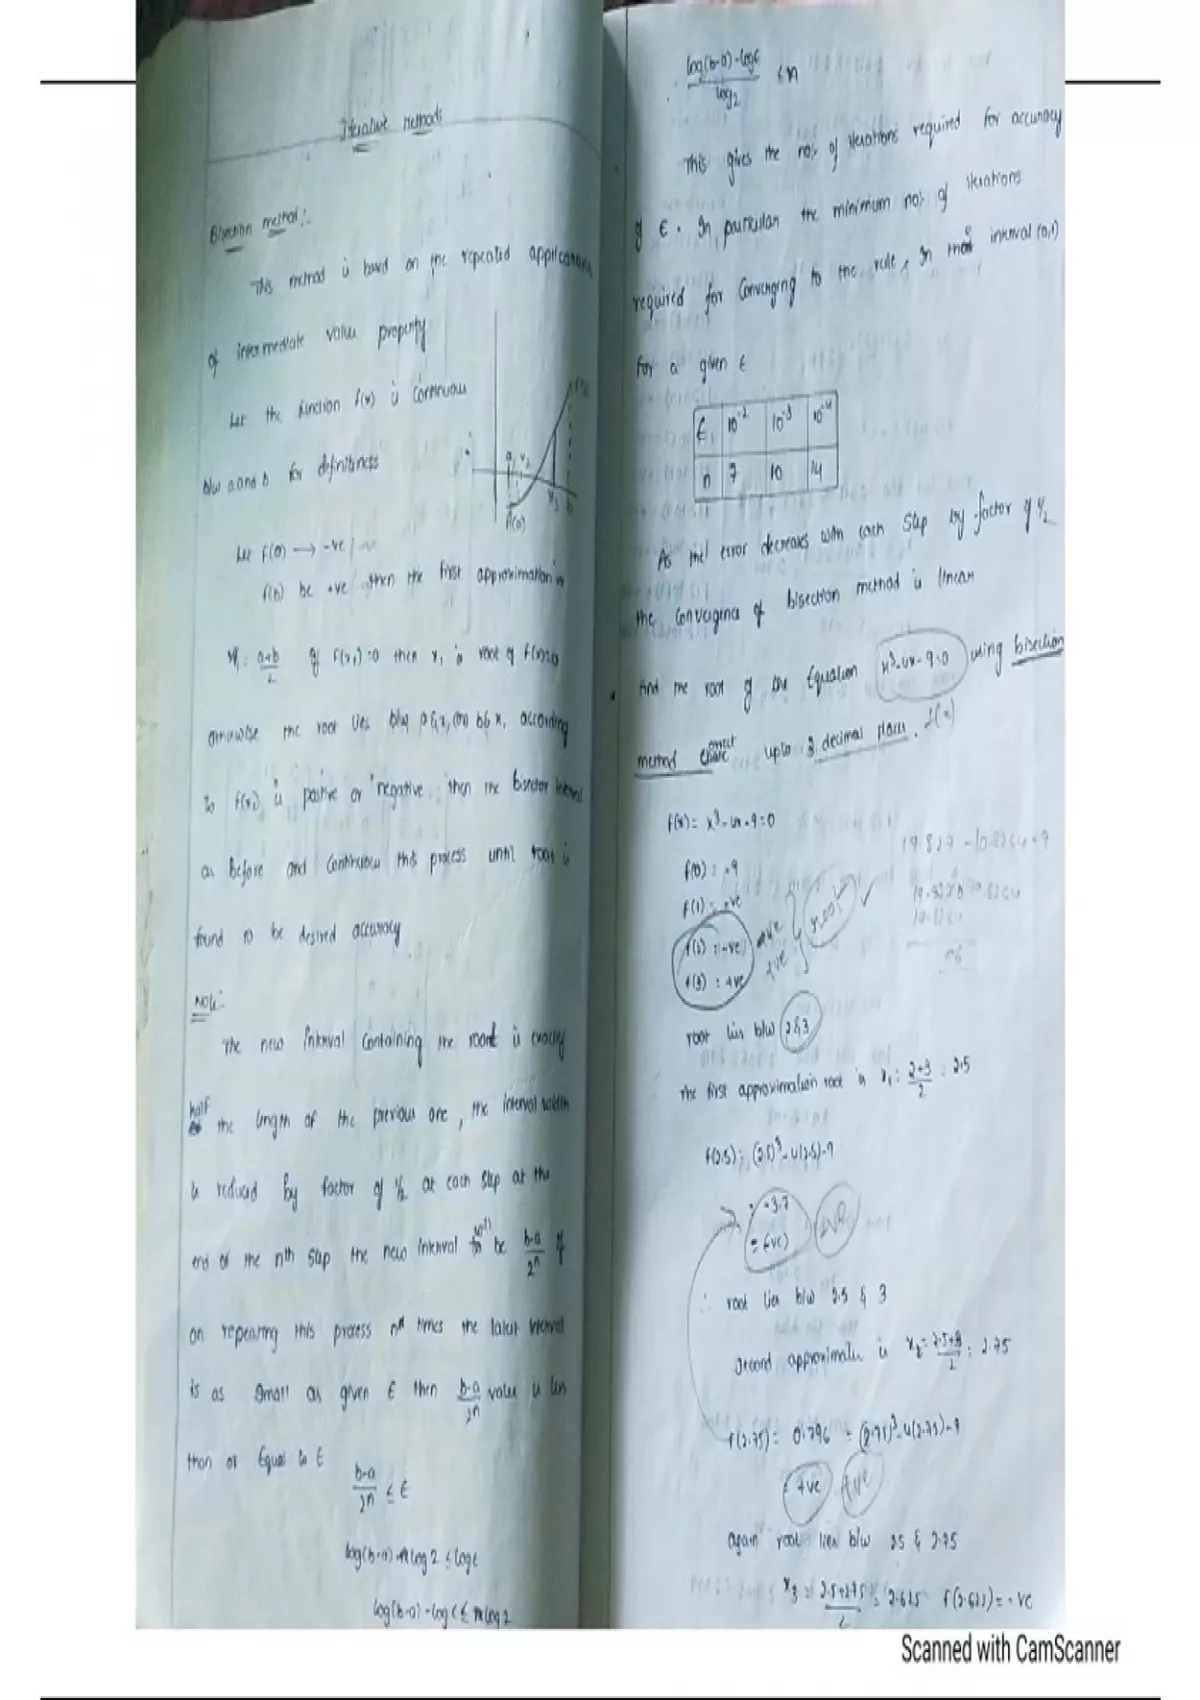 Iterative Methods
Bisection method :-
This method is based on the repeated applications
of intermediate value property
Let the function f(x) is continuous
b/w a and b for definitness
Let f(a) → -ve
f(b) be +ve then the first approximation is
x₁ = a+b/2 If f(x₁)=0 then x₁ is root of f(x)=0
otherwise the root lies b/w a & x₁ (or) b & x₁ according
to f(x₁) is positive or negative then the Bisector interval
as before and continuou this process until root is
found to be desired accuracy
f(a)
Note:-
The new interval containing the root is exactly
half the length of the previous one, the interval width
is reduced by factor of 1/2 at each step at the
end of the nth step the new interval will be b-a/2ⁿ if
on repeating this process n times the latest interval
is as small as given ϵ then b-a/2ⁿ value is less
than or Equal to ϵ
b-a/2ⁿ ≤ ϵ
log(b-a) - n log 2 ≤ log ϵ
log(b-a) - log ϵ ≤ n log 2
log(b-a) - log ϵ / log 2 ≤ n
This gives the no. of iterations required for accuracy
of ϵ. In particular the minimum no. of iterations
required for converging to the in the interval (0,1)
for a given ϵ
ϵ 10⁻² 10⁻³ 10⁻⁴
n 7 10 14
As the error decreases with each step by factor of 1/2
the convergence of bisection method is linear
find the root of the Equation x³-4x-9=0 using bisection
method correct upto 3 decimal places. f(x)
f(x) = x³-4x-9=0
f(0) = -9
f(1) = -ve
f(2) = -ve -ve
f(3) = +ve +ve
root
root lies b/w 2 & 3
The first approximation root is x₁ = 2+3/2 = 2.5
f(2.5) = (2.5)³-4(2.5)-9
= -3.7
= (-ve)
∴ root lies b/w 2.5 & 3
second approximate is x₂ = 2.5+3/2 = 2.75
f(2.75) = 0.796 = (2.75)³-4(2.75)-9
= +ve +ve
again root lies b/w 2.5 & 2.75
x₃ = 2.5+2.75/2 = 2.625 f(2.625) = -ve
Scanned with CamScanner